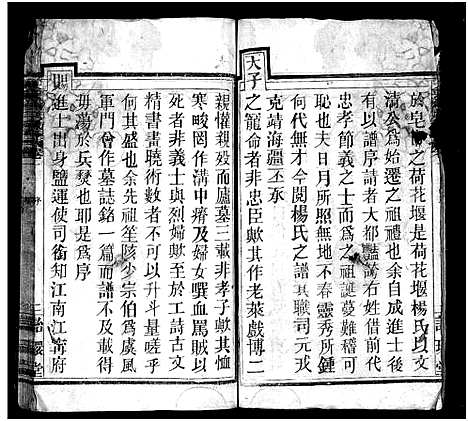 於皂□之荷花堰是荷花堰楊氏以文
清公為始遷之祖禮也余自成進士後
有以譜序請者大都豔篇右姓借前代
忠孝節義之士而為之祖誕蔓難尊甚
恥也夫日月所照無地不春靈秀所鍾
何代無才今閱楊氏之譜其職司元戎
克靖海疆丕承
天子
之寵命者非忠臣歟其作老萊戲博二
親懽親歿而廬墓三載非孝子歟其恤
寒畯罔作溝中瘠及婦女噀血罵賊以
死者非義士與烈婦歟至於工詩古文
精書畫曉術數者不可以升斗量嗟乎
何其盛也余先祖笙陔少宗伯為虞風
軍門曾作墓誌銘一篇而譜不及載得
毋蕩於兵燹也耶是為序
賜進士出身鹽運使司銜知江南江甯府
序
三詒澱堂